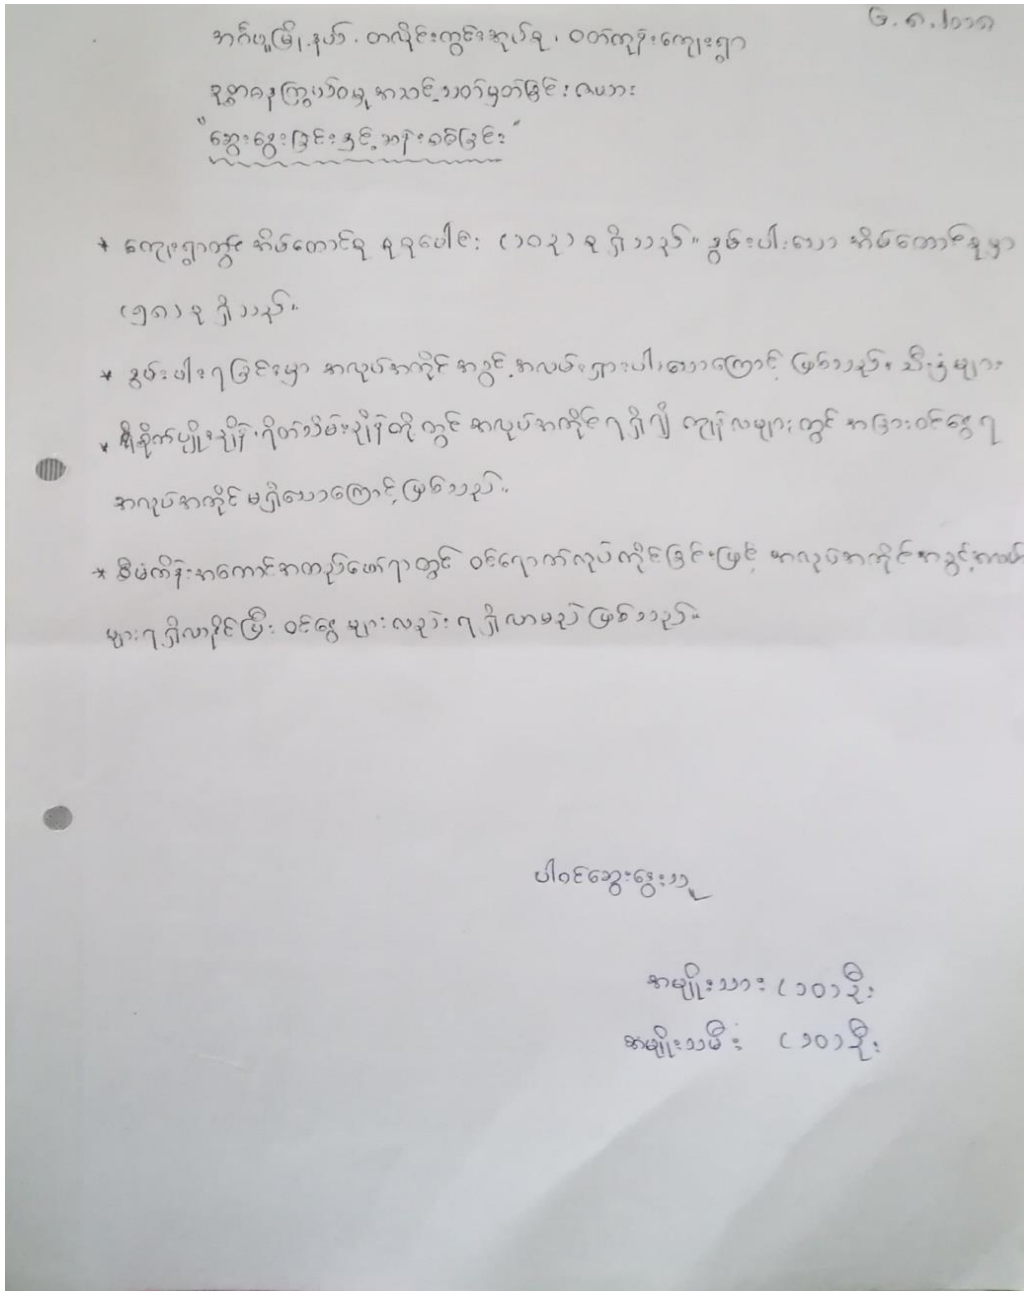 ၆.၈.၂၀၁၈
အင်္ဂပူမြို့နယ်၊ တလိုင်းကွင်းအုပ်စု၊ ဝတ်ကုန်းကျေးရွာ
ဥစ္စာဓနကြွယ်ဝမှု အဆင့်သတ်မှတ်ခြင်း ဇယား
"ဆွေးနွေးခြင်းနှင့် သုံးသပ်ခြင်း"
* ကျေးရွာတွင် အိမ်ထောင်စု စုစုပေါင်း (၁၀၃) စု ရှိသည်။ နွမ်းပါးသော အိမ်ထောင်စုမှာ
(၅၈) စု ရှိသည်။
* နွမ်းပါးရခြင်းမှာ အလုပ်အကိုင် အခွင့်အလမ်းရှားပါးသောကြောင့် ဖြစ်သည်။ သီးနှံများ
စိုက်ပျိုးချိန်၊ ရိတ်သိမ်းချိန်တို့တွင် အလုပ်အကိုင်ရရှိ၍ ကျန်လများတွင် အခြားဝင်ငွေရ
အလုပ်အကိုင် မရှိသောကြောင့် ဖြစ်သည်။
* စီမံကိန်းအကောင်အထည်ဖော်ရာတွင် ဝင်ရောက်လုပ်ကိုင်ခြင်းဖြင့် အလုပ်အကိုင်အခွင့်အလမ်း
များရရှိလာနိုင်ပြီး ဝင်ငွေများလည်း ရရှိလာမည် ဖြစ်သည်။
ပါဝင်ဆွေးနွေးသူ
အမျိုးသား (၁၀) ဦး
အမျိုးသမီး (၁၀) ဦး